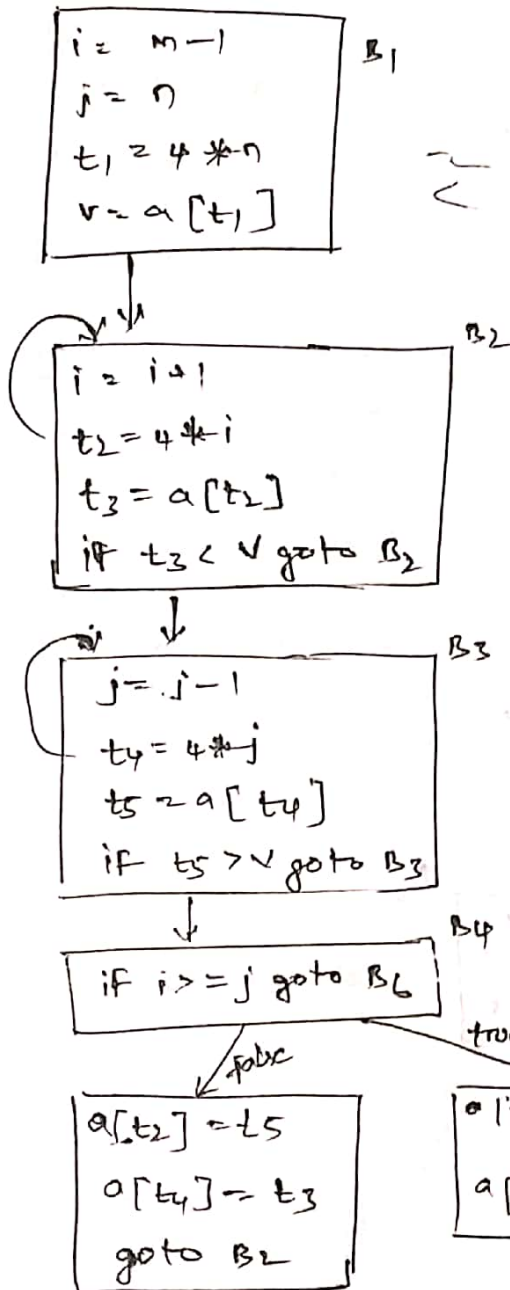 i = m-1
B1
j = n
t1 = 4 * n
v = a [t1]
B2
i = i+1
t2 = 4 * i
t3 = a[t2]
if t3 < v goto B2
B3
j = j-1
t4 = 4 * j
t5 = a [t4]
if t5 > v goto B3
B4
if i >= j goto B6
false
a[t2] = t5
a[t4] = t3
goto B2
a[